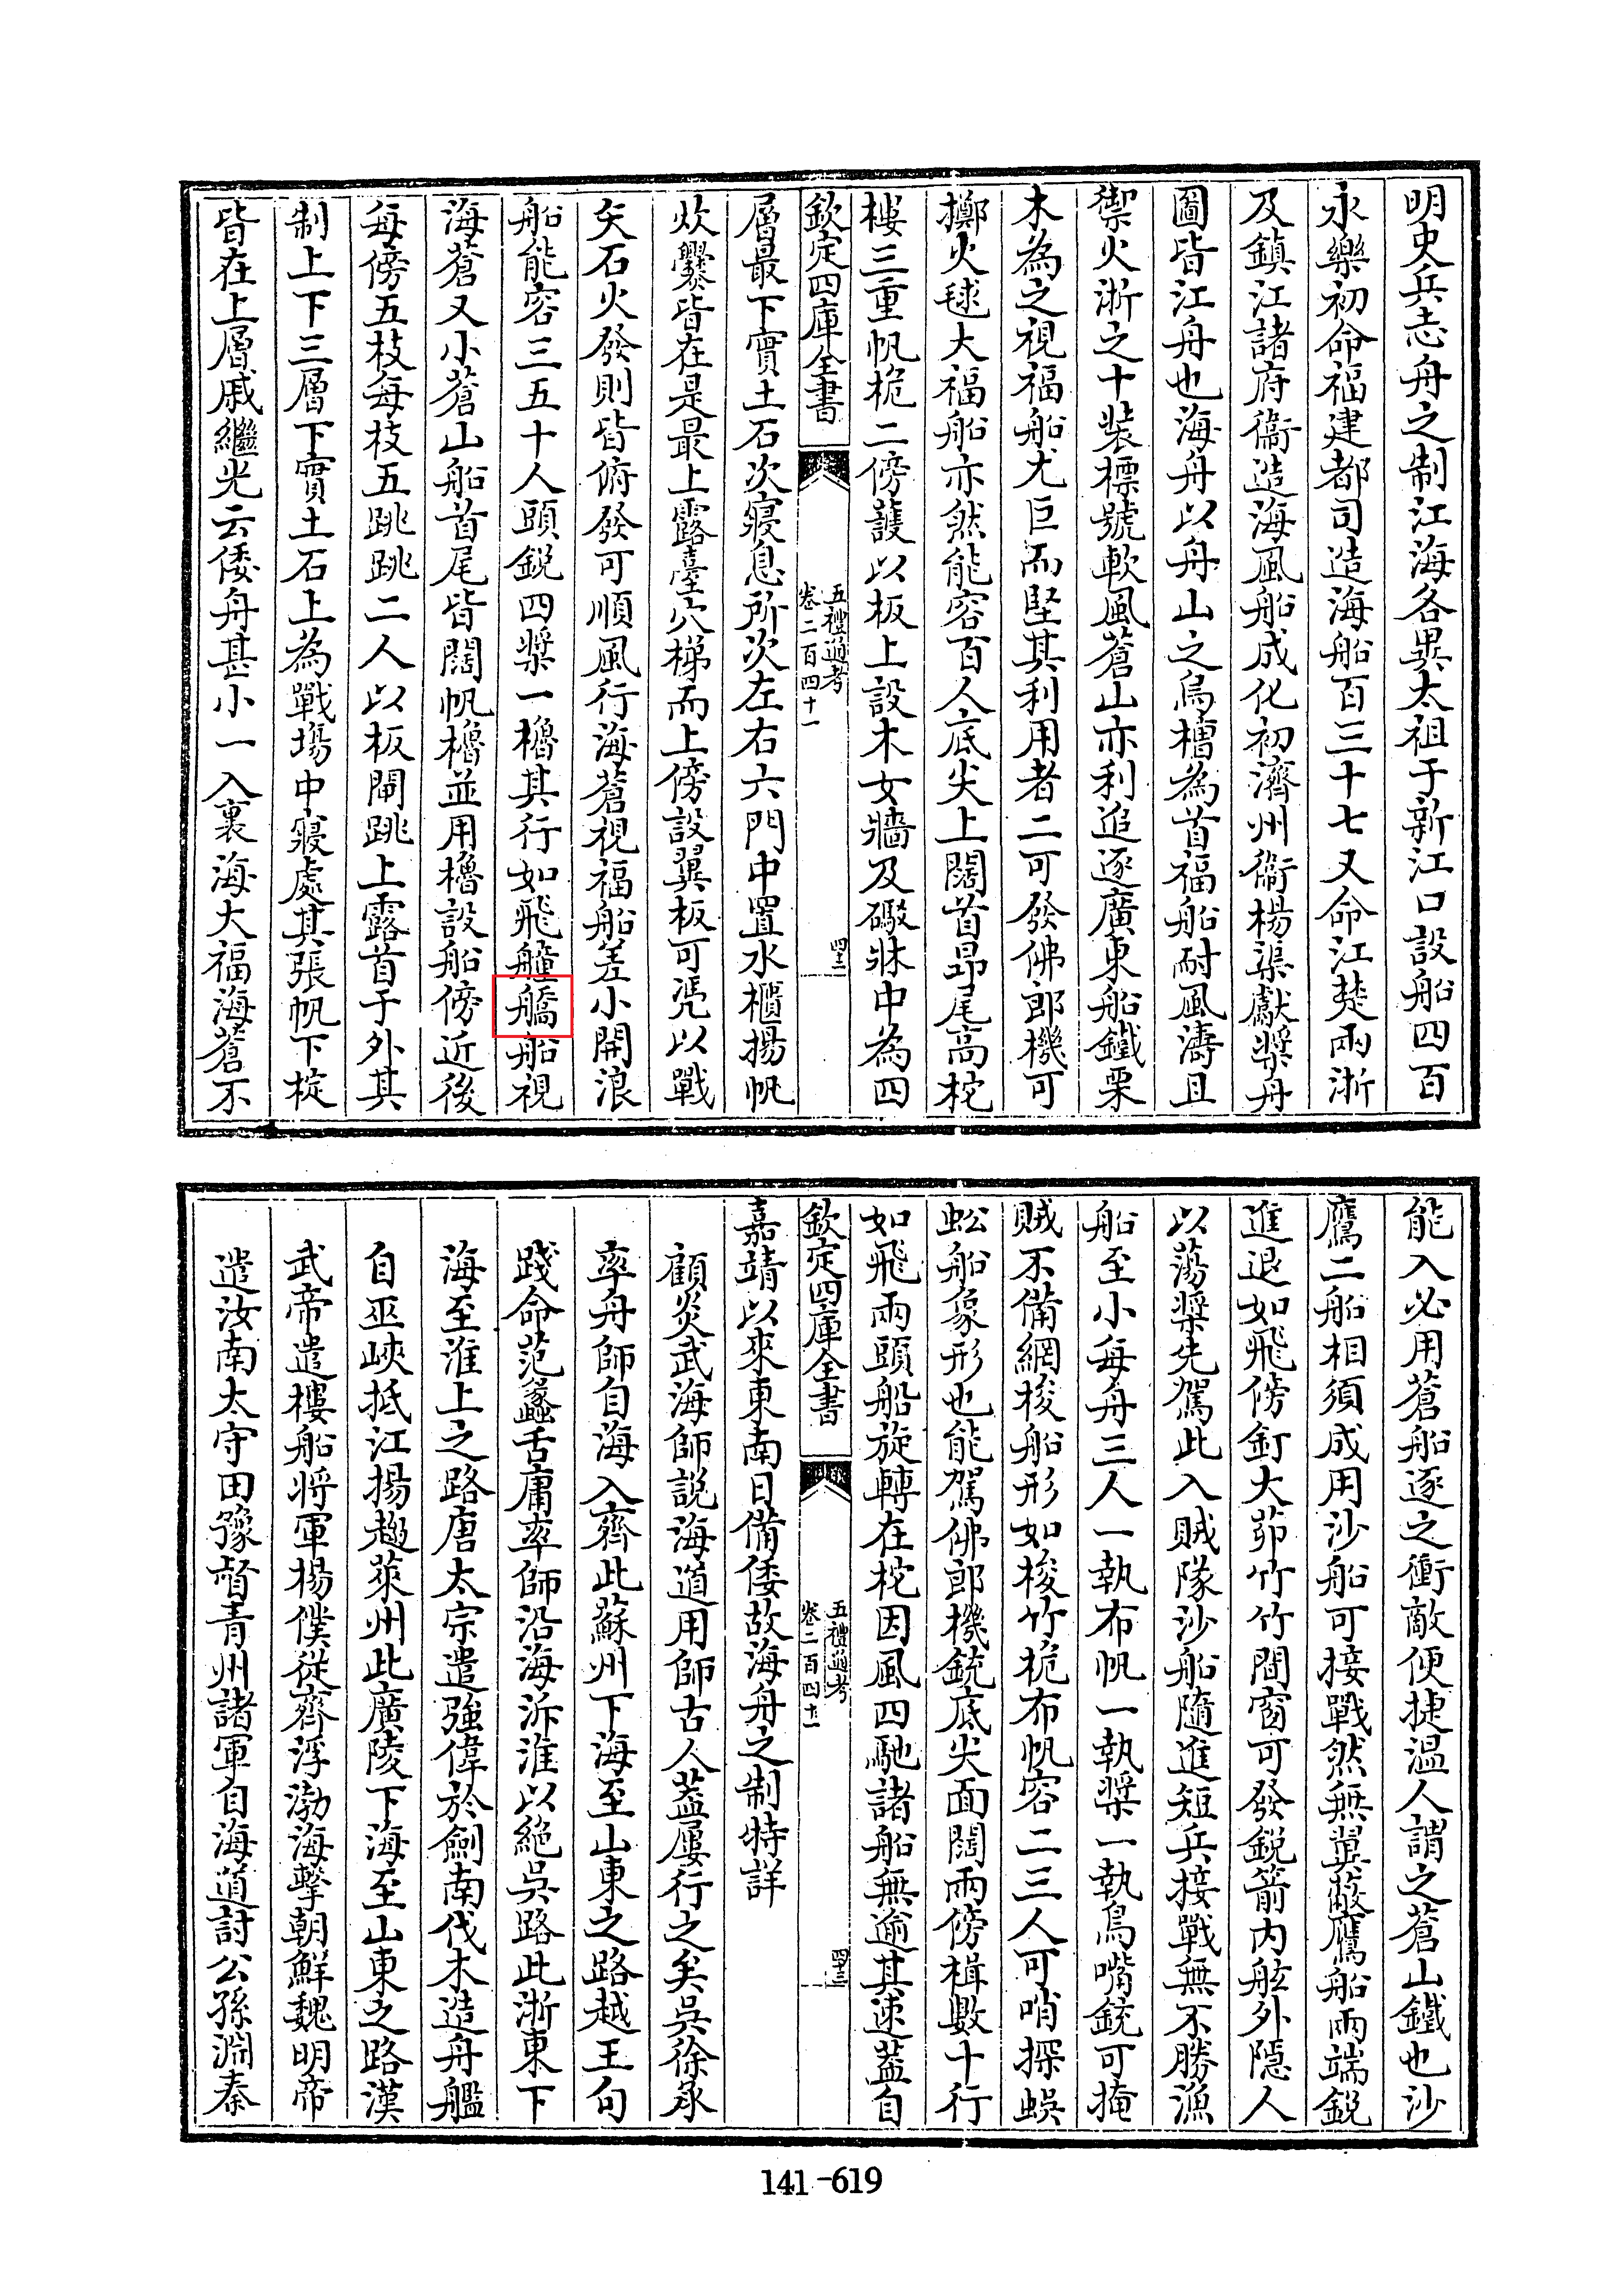 明史兵志舟之制江海各異太祖于新江口設船四百
永樂初命福建都司造海船百三十七又命江楚兩浙
及鎮江諸府衞造海風船成化初濟州衞楊渠獻槳舟
圖皆江舟也海舟以舟山之烏槽為首福船耐風濤且
禦火浙之十裝標號軟風蒼山亦利追逐廣東船鐵栗
木為之視福船尤巨而堅其利用者二可發佛郎機可
擲火毬大福船亦然能容百人底尖上闊首昂尾高柁
樓三重帆桅二傍護以板上設木女牆及礮牀中為四
欽定四庫全書
五禮通考
卷二百四十一
四十二
層最下實土石次寢息所次左右六門中置水櫃揚帆
炊爨皆在是最上露臺穴梯而上傍設翼板可凴以戰
矢石火發則皆俯發可順風行海蒼視福船差小開浪
船能容三五十人頭鋭四槳一櫓其行如飛艟䑿船視
海蒼又小蒼山船首尾皆闊帆櫓並用櫓設船傍近後
每傍五枝每枝五跳跳二人以板閘跳上露首于外其
制上下三層下實土石上為戰場中寢處其張帆下椗
皆在上層戚繼光云倭舟甚小一入裏海大福海蒼不
能入必用蒼船逐之衝敵便捷温人謂之蒼山鐵也沙
鷹二船相須成用沙船可接戰然無翼蔽鷹船兩端鋭
進退如飛傍釘大茆竹竹間窗可發鋭箭内舷外隱人
以蕩槳先駕此入賊隊沙船隨進短兵接戰無不勝漁
船至小每舟三人一執布帆一執槳一執鳥嘴銃可掩
賊不備網梭船形如梭竹桅布帆容二三人可哨探蜈
蚣船象形也能駕佛郎機銃底尖面闊兩傍楫數十行
如飛兩頭船旋轉在柁因風四馳諸船無逾其速葢自
欽定四庫全書
五禮通考
卷二百四十一
四十三
嘉靖以來東南日備倭故海舟之制特詳
顧炎武海師説海道用師古人葢屢行之矣吳徐承
率舟師自海入齊此蘇州下海至山東之路越王句
踐命范蠡舌庸率師沿海泝淮以絶吳路此浙東下
海至淮上之路唐太宗遣强偉於劍南伐木造舟艦
自巫峽抵江揚趨萊州此廣陵下海至山東之路漢
武帝遣樓船將軍楊僕從齊浮渤海擊朝鮮魏明帝
遣汝南太守田豫督青州諸軍自海道討公孫淵秦
141-619